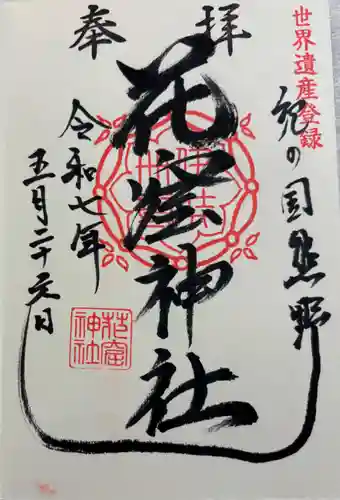 世界遺産登録
紀の国熊野
奉拝
花窟神社
令和七年
五月二十六日
花窟
神社